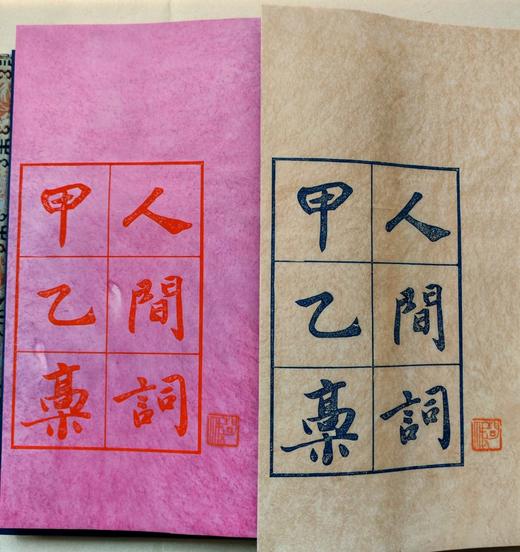 人間詞
甲乙稾
人間詞
甲乙稾